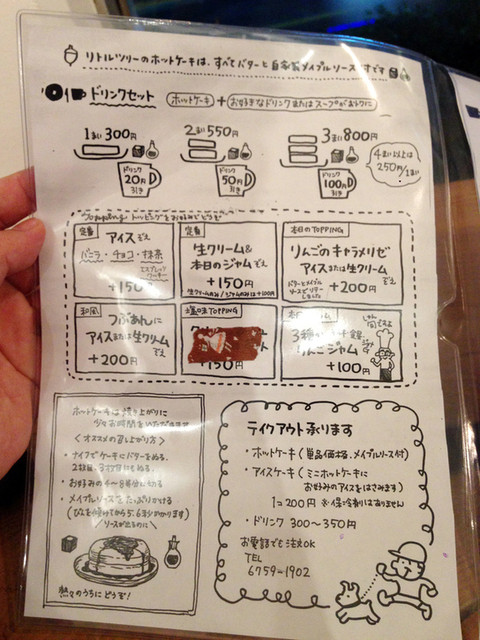 リトルツリーのホットケーキは、すべてバターと自家製メイプルソースです
ドリンクセット
ホットケーキ + お好きなドリンクまたはスープがおトクに
1まい 300円
2まい 550円
3まい 800円
ドリンク 20円 引き
ドリンク 50円 引き
ドリンク 100円 引き
4まい以上は
250円/1まい
Topping トッピングをお好みでどうぞ
定番
アイスぞえ
バニラ・チョコ・抹茶
+150
定番
生クリーム&
本日のジャムぞえ
+150円
生クリームのみ/ジャムのみは+100円
本日のTOPPING
りんごのキャラメリゼ
アイスまたは生クリーム
ぞえ
+200円
和風
つぶあんに
アイスまたは生クリーム
+200円
塩味TOPPING
150円
りんごジャム
+100円
ホットケーキは焼き上がりに
少々お時間をいただきます
<オススメの召し上がり方>
・ナイフでケーキにバターをぬる。
2枚目、3枚目にもぬる。
・お好みの4〜8等分に切る
・メイプルソースをたっぷりかける
ソースが出るのに
熱々のうちにどうぞ!
テイクアウト承ります
・ホットケーキ(単品価格、メイプルソース付)
・アイスケーキ(ミニホットケーキに
お好みのアイスをはさみます)
1コ200円 ※保冷剤はありません
・ドリンク 300〜350円
お電話でも注文OK
TEL
6759-1902